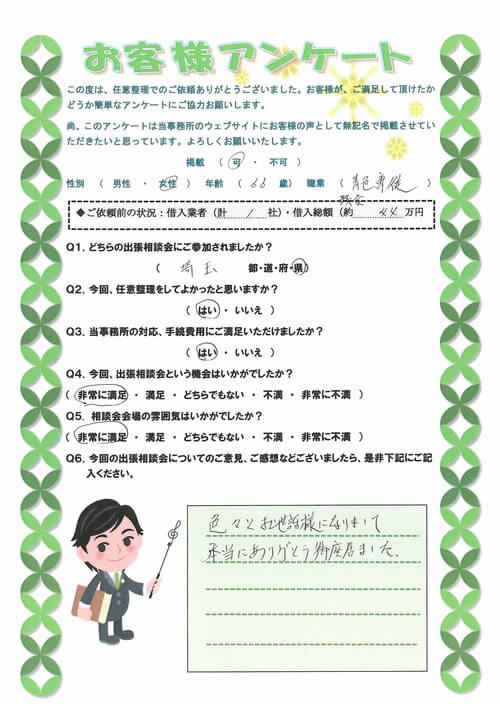 お客様アンケート
この度は、任意整理でのご依頼ありがとうございました。お客様が、ご満足して頂けたか
どうか簡単なアンケートにご協力お願いします。
尚、このアンケートは当事務所のウェブサイトにお客様の声として無記名で掲載させてい
ただきたいと思っています。よろしくお願いいたします。
掲載 ( 可 ・ 不可 )
性別 ( 男性 ・ 女性 ) 年齢 ( 66 歳) 職業 ( 青色専従 )
◆ご依頼前の状況：借入業者 (計 1 社)・借入総額 (約 44 万円
Q1. どちらの出張相談会にご参加されましたか？
( 埼玉 都・道・府・県 )
Q2. 今回、任意整理をしてよかったと思いますか？
( はい ・ いいえ )
Q3. 当事務所の対応、手続費用にご満足いただけましたか？
( はい ・ いいえ )
Q4. 今回、出張相談会という機会はいかがでしたか？
( 非常に満足 ・ 満足 ・ どちらでもない ・ 不満 ・ 非常に不満 )
Q5. 相談会会場の雰囲気はいかがでしたか？
( 非常に満足 ・ 満足 ・ どちらでもない ・ 不満 ・ 非常に不満 )
Q6. 今回の出張相談会についてのご意見、ご感想などございましたら、是非下記にご記
入ください。
色々とお世話様になりまして
本当にありがとう御座居ました.